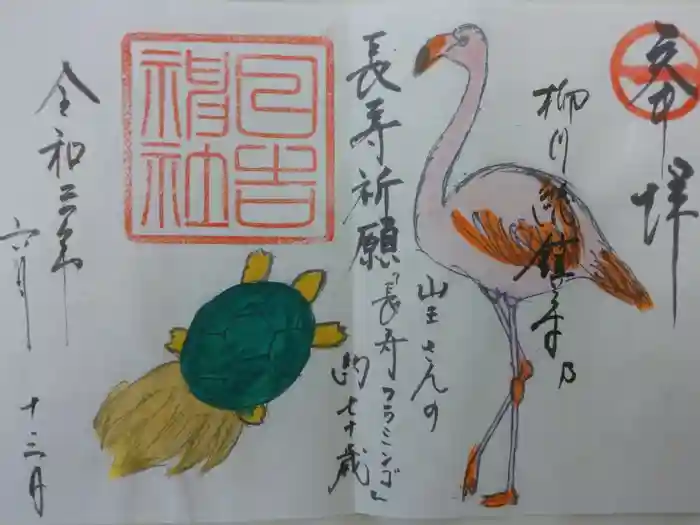 奉拝
柳川総鎮守乃
山王さんの
長寿祈願「長寿フラミンゴ」
七十歳
日吉
神社
令和三年
六月
十三日